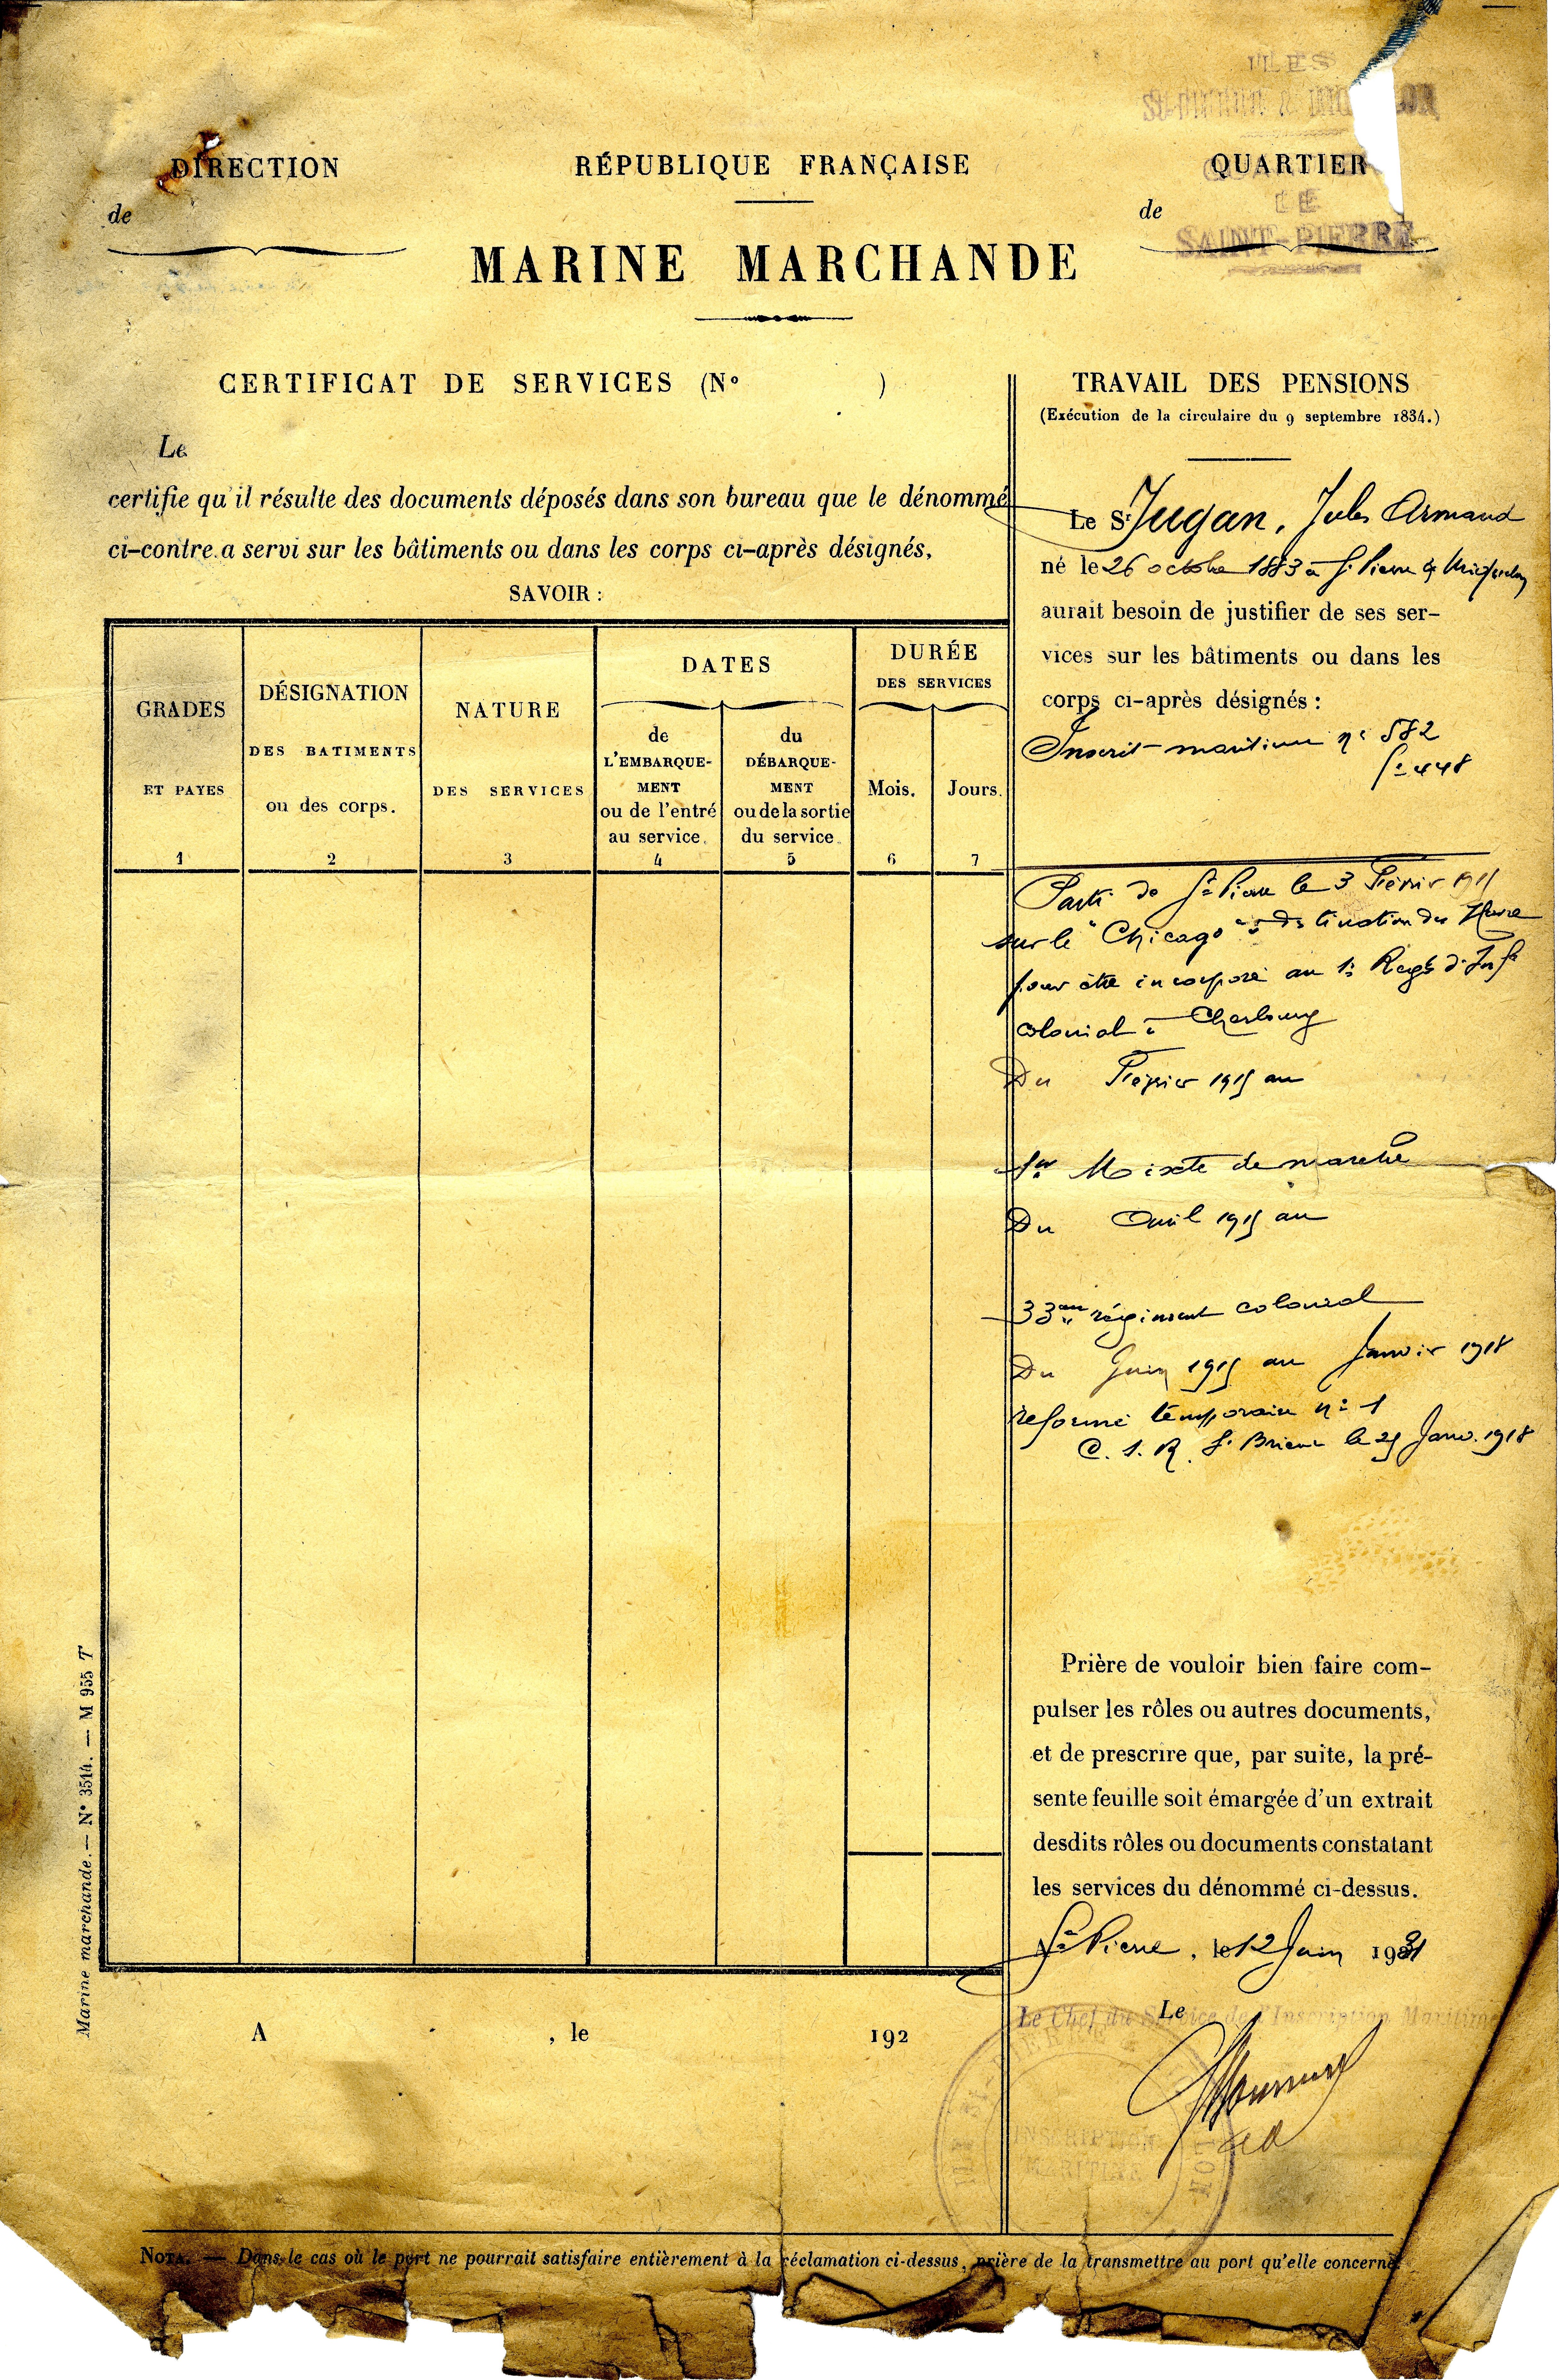 ILES
DIRECTION
RÉPUBLIQUE FRANÇAISE
QUARTIER
de
de
LE
SAINT-PIERRE
MARINE MARCHANDE
CERTIFICAT DE SERVICES (No )
Le
certifie qu'il résulte des documents déposés dans son bureau que le dénommé
ci-contre a servi sur les bâtiments ou dans les corps ci-après désignés,
SAVOIR :
GRADES
ET PAYES
1
DÉSIGNATION
DES BATIMENTS
ou des corps.
2
NATURE
DES SERVICES
3
DATES
de
L'EMBARQUE-
MENT
ou de l'entré
au service.
4
du
DÉBARQUE-
MENT
ou de la sortie
du service.
5
DURÉE
DES SERVICES
Mois.
6
Jours.
7
TRAVAIL DES PENSIONS
(Exécution de la circulaire du 9 septembre 1834.)
Le Sr Jugan, Jules Armand
né le 26 octobre 1883 à St Pierre & Miquelon
aurait besoin de justifier de ses ser-
vices sur les bâtiments ou dans les
corps ci-après désignés :
Inscrit maritime no 582
fo 448
Parti de St Pierre le 3 Février 1915
sur le "Chicago" à destination du Havre
pour être incorporé au 1er Regt d'Infie
colonial à Cherbourg
Du Février 1915 au
1er Mixte de marche
Du Avril 1915 au
33eme régiment colonial
Du Juin 1915 au Janvier 1918
réformé temporaire no 1
C. S. R. St Brieuc le 25 Janv. 1918
Prière de vouloir bien faire com-
pulser les rôles ou autres documents,
et de prescrire que, par suite, la pré-
sente feuille soit émargée d'un extrait
desdits rôles ou documents constatant
les services du dénommé ci-dessus.
St Pierre, le 12 Juin 1931
Le
Le Chef du Service de l'Inscription Maritime
INSCRIPTION
MARITIME
A , le 192
Marine marchande. — No 3514. — M 955 T
NOTA. — Dans le cas où le port ne pourrait satisfaire entièrement à la réclamation ci-dessus, prière de la transmettre au port qu'elle concerne.